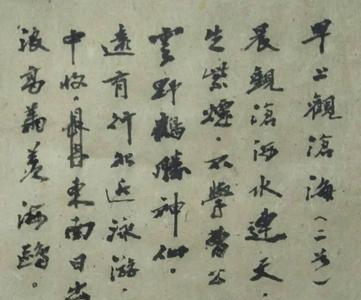 早上觀滄海(二首)
晨觀滄海水連天
生紫煙。不學曹公
雲野鶴勝神仙。
遠有行船近泳游.
中收。東南日出
浪高翁羨海鷗。